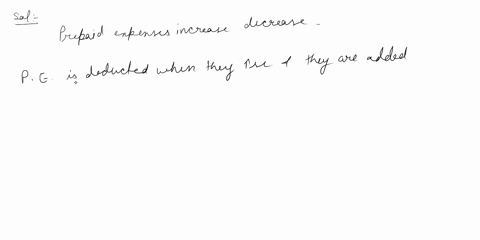 Sol:-
Prepaid expenses increase decrease -
P.E is deducted when they ↑se & they are added